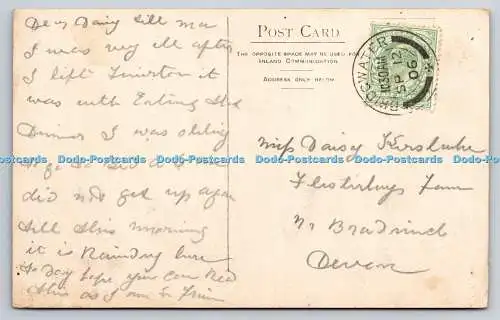 Dear Daisy Tell Ma
I was very ill after
I left Tiverton it
was with Eating that
Dinner I was oblidg
to go to Bed & I
did not get up again
till this morning
it is Raining here
to day hope you can Read
this as I am in
POST CARD
THE OPPOSITE SPACE MAY BE USED FOR
INLAND COMMUNICATION.
ADDRESS ONLY BELOW.
BRIDGWATER
10.30AM
SP 12
06
Miss Daisy Kerslake
Farm
Nr Bradninch
Devon
Dodo-Postcards Dodo-Postcards Dodo-Postcards Dodo-Postcards Dodo-Postcards